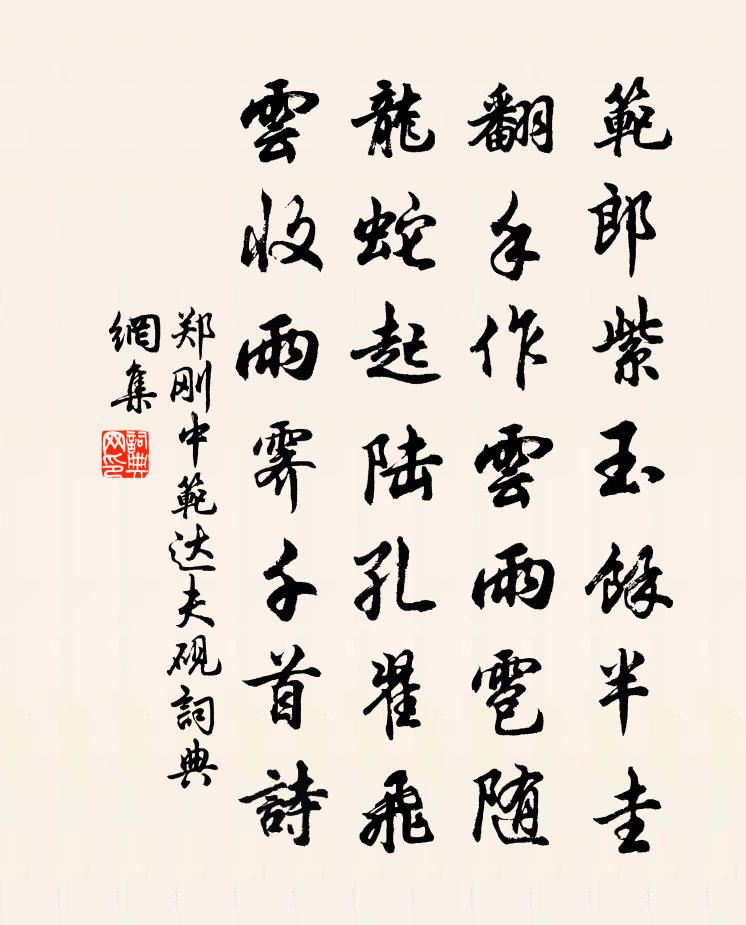 範郎紫玉餘半圭
翻手作雲雨雹随
龍蛇起陆孔翟飛
雲收雨霁千首詩
郑刚中範达夫砚詞典
網集
詞典網印